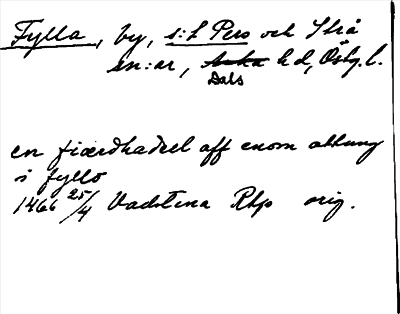 Fylla, by, s:t Pers och Strå
sn:ar, Dals hd, Östg. l.
en fiærdhadeel aff enom attung
i fyllo
1466 25/4 Vadstena Rbp orig.